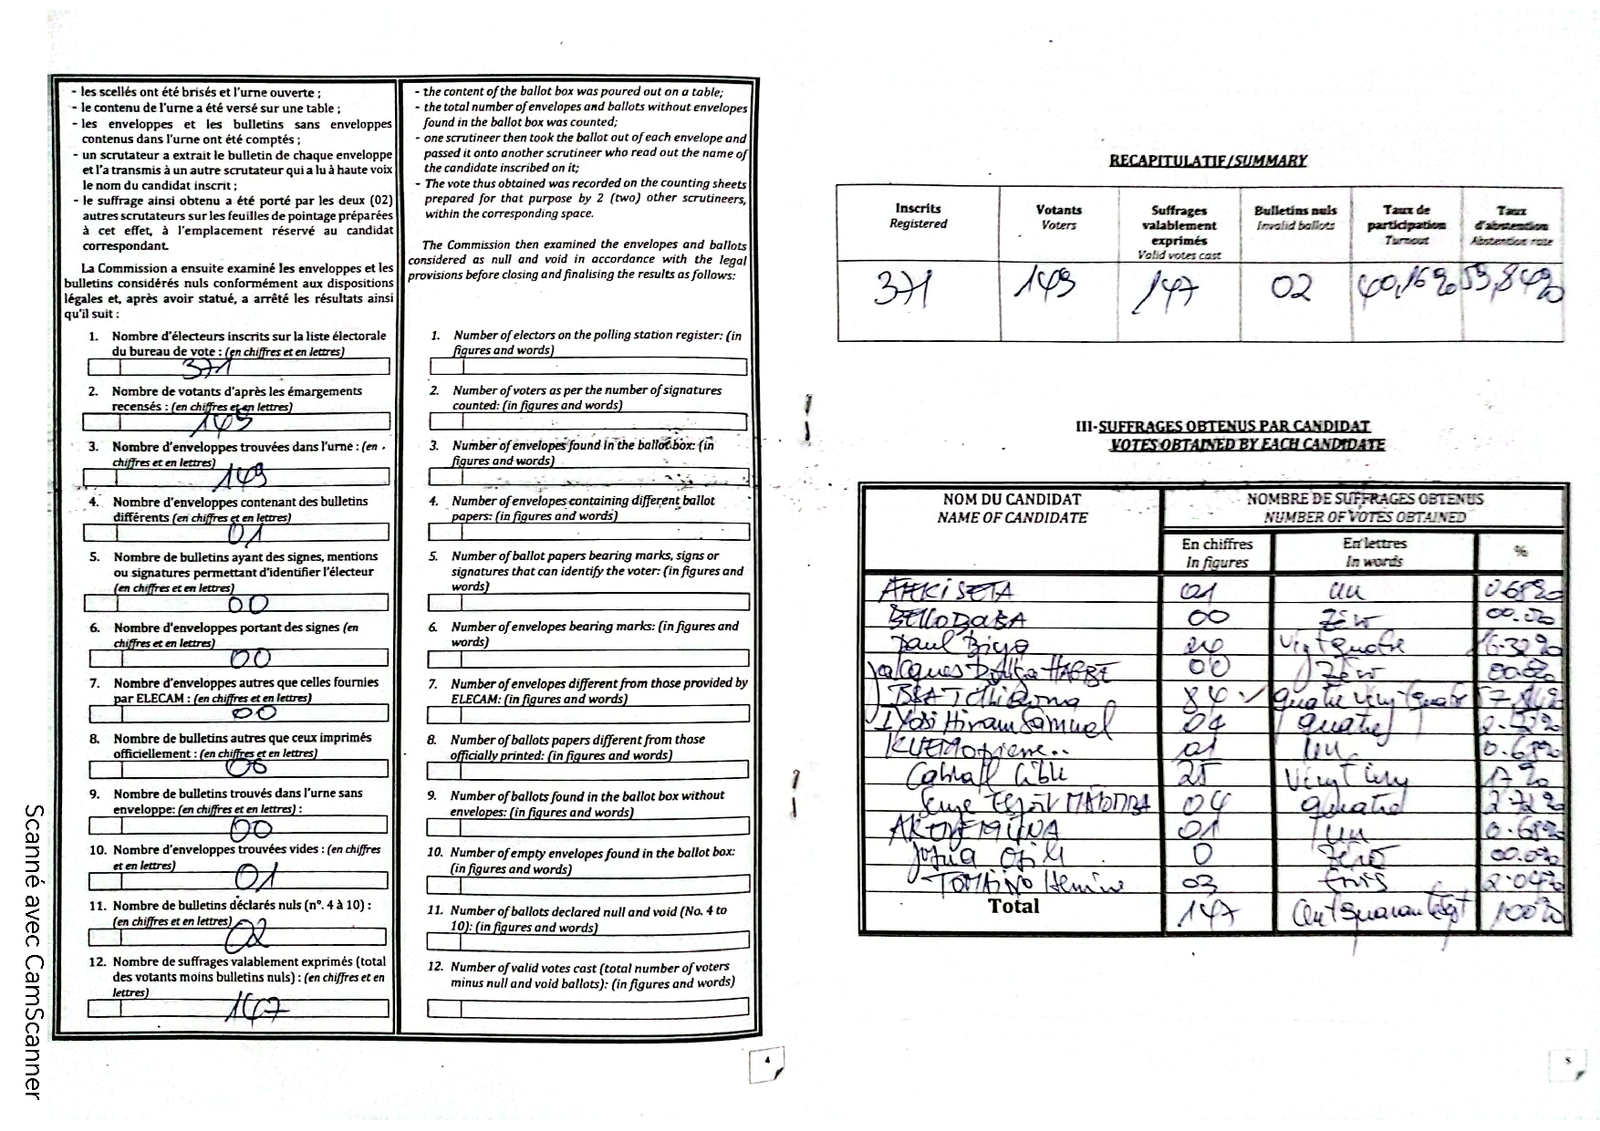 - les scellés ont été brisés et l'urne ouverte ;
- le contenu de l'urne a été versé sur une table ;
- les enveloppes et les bulletins sans enveloppes
contenus dans l'urne ont été comptés ;
- un scrutateur a extrait le bulletin de chaque enveloppe
et l'a transmis à un autre scrutateur qui a lu à haute voix
le nom du candidat inscrit ;
- le suffrage ainsi obtenu a été porté par les deux (02)
autres scrutateurs sur les feuilles de pointage préparées
à cet effet, à l'emplacement réservé au candidat
correspondant.
La Commission a ensuite examiné les enveloppes et les
bulletins considérés nuls conformément aux dispositions
légales et, après avoir statué, a arrêté les résultats ainsi
qu'il suit :
1. Nombre d'électeurs inscrits sur la liste électorale
du bureau de vote : (en chiffres et en lettres)
371
2. Nombre de votants d'après les émargements
recensés : (en chiffres et en lettres)
149
3. Nombre d'enveloppes trouvées dans l'urne : (en
chiffres et en lettres)
149
4. Nombre d'enveloppes contenant des bulletins
différents (en chiffres et en lettres)
01
5. Nombre de bulletins ayant des signes, mentions
ou signatures permettant d'identifier l'électeur
(en chiffres et en lettres)
00
6. Nombre d'enveloppes portant des signes (en
chiffres et en lettres)
00
7. Nombre d'enveloppes autres que celles fournies
par ELECAM : (en chiffres et en lettres)
00
8. Nombre de bulletins autres que ceux imprimés
officiellement : (en chiffres et en lettres)
00
9. Nombre de bulletins trouvés dans l'urne sans
enveloppe: (en chiffres et en lettres) :
00
10. Nombre d'enveloppes trouvées vides : (en chiffres
et en lettres)
01
11. Nombre de bulletins déclarés nuls (n°. 4 à 10) :
(en chiffres et en lettres)
02
12. Nombre de suffrages valablement exprimés (total
des votants moins bulletins nuls) : (en chiffres et en
lettres)
147
- the content of the ballot box was poured out on a table;
- the total number of envelopes and ballots without envelopes
found in the ballot box was counted;
- one scrutineer then took the ballot out of each envelope and
passed it onto another scrutineer who read out the name of
the candidate inscribed on it;
- The vote thus obtained was recorded on the counting sheets
prepared for that purpose by 2 (two) other scrutineers,
within the corresponding space.
The Commission then examined the envelopes and ballots
considered as null and void in accordance with the legal
provisions before closing and finalising the results as follows:
1. Number of electors on the polling station register: (in
figures and words)
2. Number of voters as per the number of signatures
counted: (in figures and words)
3. Number of envelopes found in the ballot box: (in
figures and words)
4. Number of envelopes containing different ballot
papers: (in figures and words)
5. Number of ballot papers bearing marks, signs or
signatures that can identify the voter: (in figures and
words)
6. Number of envelopes bearing marks: (in figures and
words)
7. Number of envelopes different from those provided by
ELECAM: (in figures and words)
8. Number of ballots papers different from those
officially printed: (in figures and words)
9. Number of ballots found in the ballot box without
envelopes: (in figures and words)
10. Number of empty envelopes found in the ballot box:
(in figures and words)
11. Number of ballots declared null and void (No. 4 to
10): (in figures and words)
12. Number of valid votes cast (total number of voters
minus null and void ballots): (in figures and words)
4
Scanné avec CamScanner
RECAPITULATIF/SUMMARY
Inscrits Votants Suffrages Bulletins nuls Taux de Taux
Registered Voters valablement Invalid ballots participation d'abstention
exprimés Turnout Abstention rate
Valid votes cast
371 149 147 02 40,16% 59,84%
III-SUFFRAGES OBTENUS PAR CANDIDAT
VOTES OBTAINED BY EACH CANDIDATE
NOM DU CANDIDAT NOMBRE DE SUFFRAGES OBTENUS
NAME OF CANDIDATE NUMBER OF VOTES OBTAINED
En chiffres En lettres %
In figures In words
01 un 0.68%
BELLO BOUBA 00 Zéro 00.00
Paul Biya 24 Vingt quatre 16.32%
Jacques 00 Zéro
Tchiroma 84 quatre vingt quatre
Iyodi Hiram Samuel 04 quatre 2.72%
KUEMO pierre.. 01 un 0.68%
Cabral Libii 25 Vingt cinq 17%
Serge Espoir MATOMBA 04 quatre 2.72%
AKERE MUNA 01 un 0.68%
Joshua Osih 0 Zéro 00.0%
TOMAINO Hermine 03 trois 2.04%
Total 147 Cent quarante sept 100%